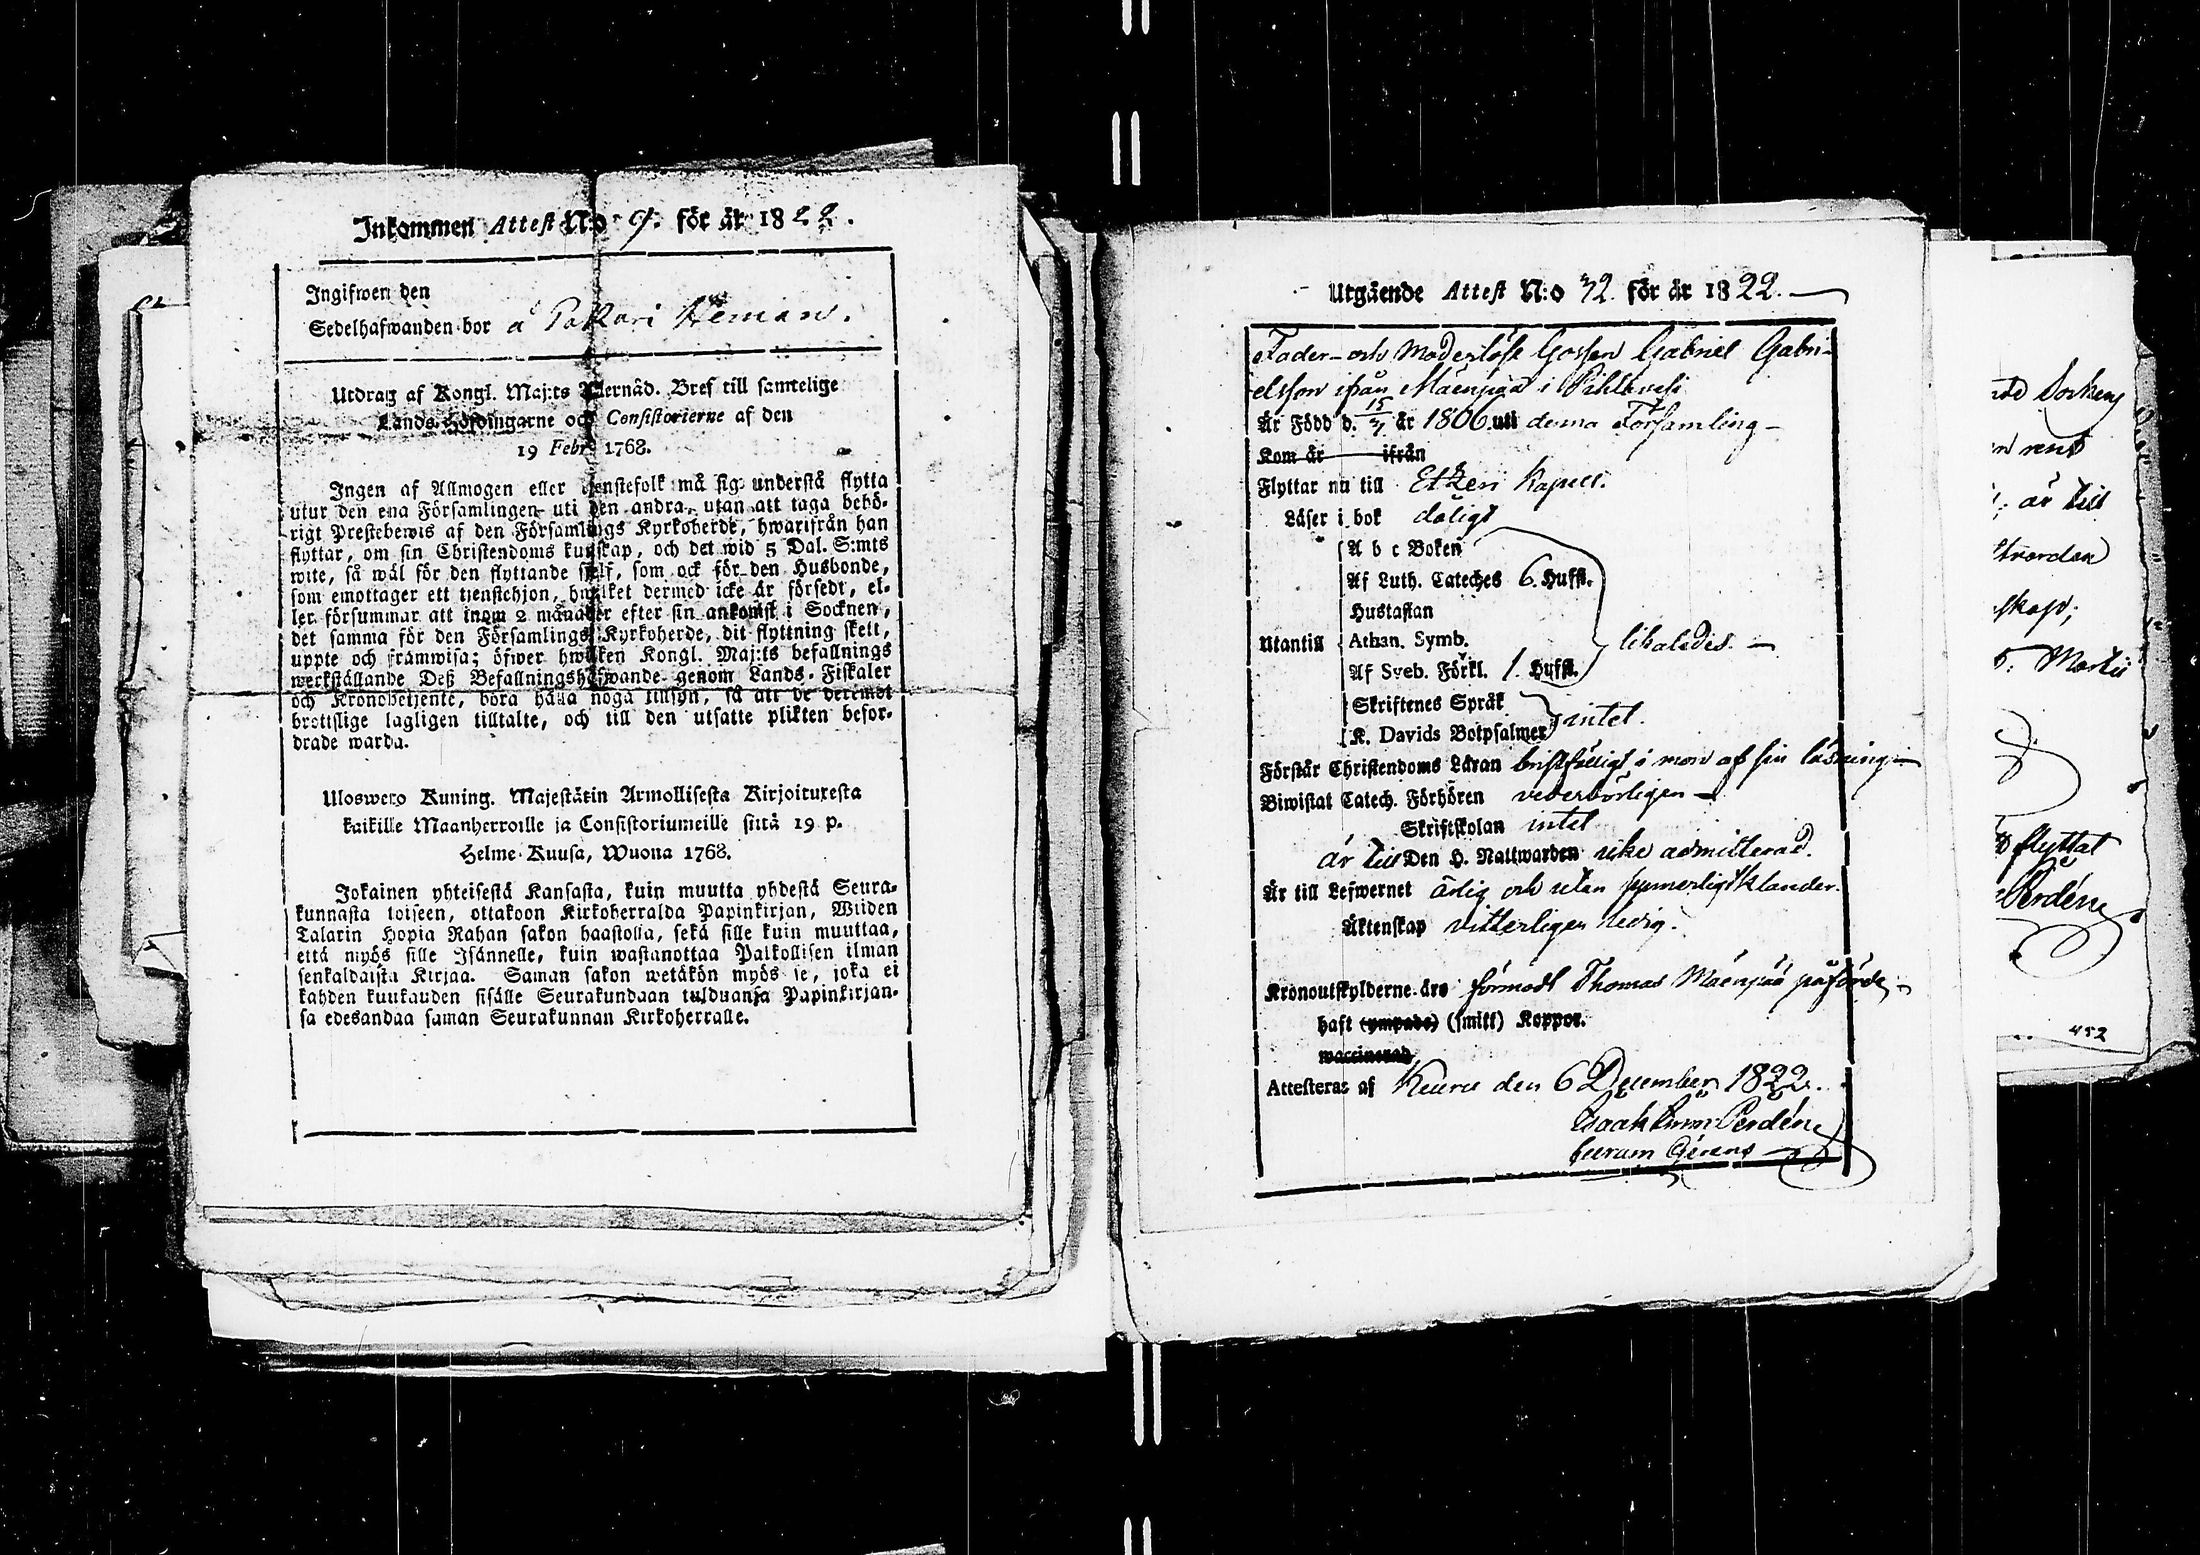 Inkommen Attest N:o 9. för år 1822.
Ingifwen den
Sedelhafwanden bor å Pakari Heman.
Utdrag af Kongl. Maj:ts Allernåd. Bref till samtelige
Lands-Höfdingarne och Consistorierne af den
19 Febr. 1768.
Ingen af Allmogen eller tjenstefolk må sig understå flytta
utur den ena Församlingen uti den andra, utan att taga behö-
rigt Prestebewis af den Församlings Kyrkoherde, hwarifrån han
flyttar, om sin Christendoms kunskap, och det wid 5 Dal. S:mts
wite, så wäl för den flyttande sjelf, som ock för den Husbonde,
som emottager ett tjenstehjon, hwilket dermed icke är försedt, el-
ler försummar att inom 2 månader efter sin ankomst i Socknen,
det samma för den Församlings Kyrkoherde, dit flyttning skett,
uppte och framwisa; öfwer hwilken Kongl. Maj:ts befallnings
werkställande Deß Befallningshafwande genom Lands-Fiskaler
och Kronobetjente, böra hålla noga tillsyn, så att de deremot
brottslige lagligen tilltalte, och till den utsatte plikten befor-
drade warda.
Uloswero Kuning. Majestätin Armollisesta Kirjoituxesta
kaikille Maanherroille ja Consistoriumeille siitä 19 p.
Helme-Kuusa, Wuona 1768.
Jokainen yhteisestä Kansasta, kuin muutta yhdestä Seura-
kunnasta toiseen, ottakoon Kirkoherralda Papinkirjan, Wiiden
Talarin Hopia Rahan sakon haastolla, sekä sille kuin muuttaa,
että myös sille Isännelle, kuin wastanottaa Palkollisen ilman
senkaldaista Kirjaa. Saman sakon wetäkön myös se, joka ei
kahden kuukauden sisälle Seurakundaan tulduansa Papinkirjan-
sa edesandaa saman Seurakunnan Kirkoherralle.
Utgående Attest N:o 32. för år 1822.
Fader- och Moderlöse Gossen Gabriel Gabri-
elsson ifrån Mäenpää i Pihlavesi
Är Född d. 15/7 år 1806 uti denna Församling
Kom år ifrån
Flyttar nu till Etzeri Kapell.
Läser i bok dåligt
A b c Boken
Af Luth. Cateches 6. Hufst.
Hustaflan
Utantill Athan. Symb. likaledes.
Af Sveb. Förkl. 1. Hufst.
Skriftenes Språk
intet.
K. Davids Botpsalmer
Förstår Christendoms Läran bristfälligt i mon af sin läsning
Biwistat Catech. Förhören vederbörligen
Skriftskolan intet
är till Den H. Nattwarden icke admitterad.
Är till Lefwernet ärlig och utan synnerligt klander.
Äktenskap vitterligen ledig.
Kronoutskylderne äro förmodl Thomas Mäenpää påförde,
haft (ympade) (smitt) Koppor.
waccinerad
Attesteras af Keuru den 6 December 1822.
Isaak Perdén
sorkeny
rent
är till
skap;
Martii
flyttat
Perdén
452